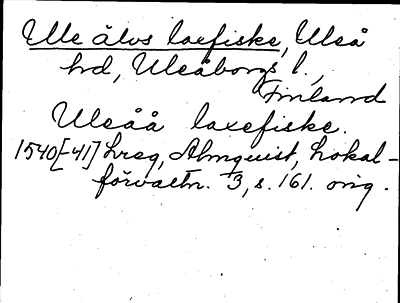 Ule älvs laxfiske, Uleå
hd, Uleåborgs l.,
Finland
Uleåå laxefiske.
1540[-41] hreg, Almquist, Lokal-
förvaltn. 3, s. 161. orig.